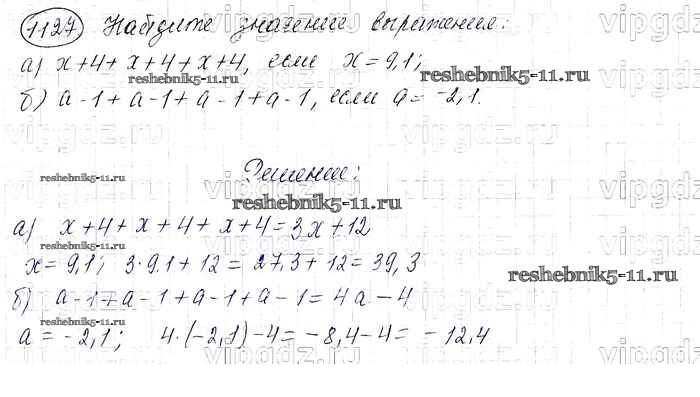 1127 Найдите значение выражения:
а) x+4+x+4+x+4, если x=9,1;
reshebnik5-11.ru
reshebnik5-11.ru
б) a-1+a-1+a-1+a-1, если a=-2,1.
Решение:
reshebnik5-11.ru
reshebnik5-11.ru
а) x+4+x+4+x+4=3x+12
reshebnik5-11.ru
x=9,1; 3·9.1+12=27,3+12=39,3
reshebnik5-11.ru
б) a-1+a-1+a-1+a-1=4a-4
reshebnik5-11.ru
a=-2,1; 4·(-2,1)-4=-8,4-4=-12,4
vipgdz.ru